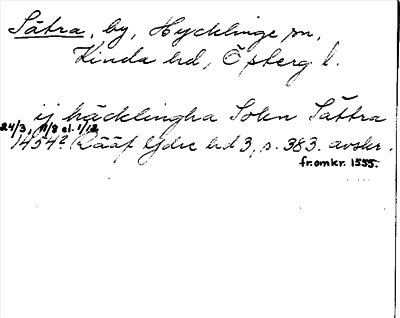 Sätra, by, Hycklinge sn,
Kinda hd, Öpberg l.
ij häcklingha Sokn Sättra
24/3, 11/8 el. 1/12
1454? Rääf Ydre hd 3, s. 383. avskr.
fr. omkr. 1555.